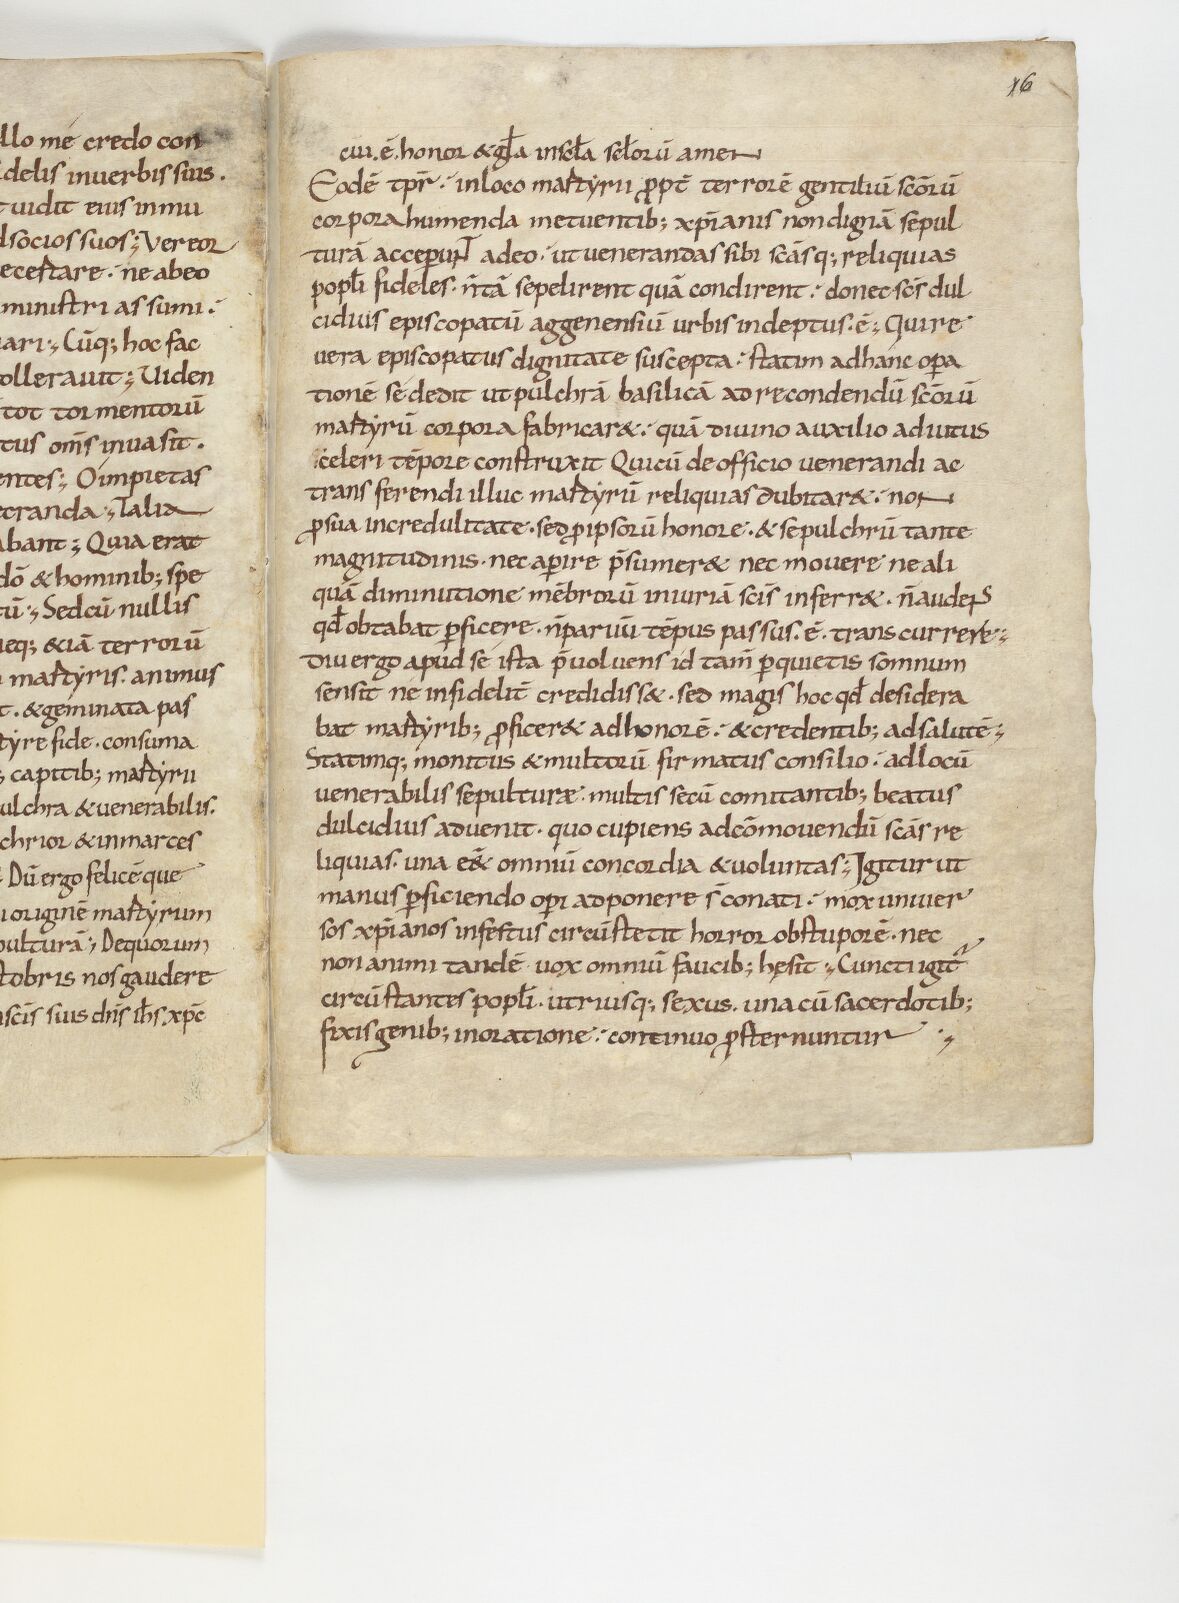 llo me credo con
delis inuerbis suis.
uidit eius inmu
dsocios suos; Vereor
ecestare. ne abeo
ministri assumi.
uari; Cūq; hoc fac
tollerauit; Uiden
tot tormentorū
tus om̄s inuasit.
entes; O impietas
cranda; Talia
abant; Quia erat
dō & hominib; spe
tū; Sedcū nullis
ieq; &iā terrorū
martyris. animus
t. &geminata pas
tyre fide. consuma
; capitib; martyrii
ulchra &uenerabilis.
chrior &inmarces
Dū ergo felicē que
i originē martyrum
pulturā; Dequorum
ctobris nos gaudere
scīs suis dn̄s ih̄s xp̄c
16
cui. ē. honor &gl̄a insc̄l̄a sc̄l̄orū amen
Eodē tp̄r. inloco martyrii ꝓpt̄ terrorē gentiliū sc̄orū
corpora humenda metuentib; xp̄ianis non dignā sepul
turā acceperunt̄ adeo. ut uenerandas sibi sc̄asq; reliquias
popl̄i fideles. n̄tā sepelirent quā condirent. donec sc̄s dul
cidius episcopatū aggenensiū urbis indeptus. ē; Qui re
uera episcopatus dignitate suscepta. statim adhanc oꝑa
tionē se dedit ut pulchrā basilicā ad recondendū sc̄orū
martyrū corpora fabricar&. quā diuino auxilio adiutus
celeri tēpore construxit Qui cū de officio uenerandi ac
transferendi illuc martyrū reliquias dubitar&. non
ꝓsua incredulitate. sed ꝓipsorū honore. & sepulchrū tante
magnitudinis. nec aꝑire p̄sumer& nec mouere ne ali
quā diminutione mēbrorū iniuriā sc̄is inferr&. n̄ auders
qd̄ obtabat ꝑficere. n̄ paruū tēpus passus. ē. transcurrere;
Diu ergo apud se ista p̄uoluens id tam̄ ꝑquietis somnum
sensit ne infidelit̄ credidiss&. sed magis hoc qd̄ desidera
bat martyrib; ꝓficer& adhonorē. &credentib; adsalutē;
Statimq; monitus &multorū firmatus consilio. adlocū
uenerabilis sepulturæ. multis secū comitantib; beatus
dulcidius aduenit. quo cupiens adcōmouendū sc̄as re
liquias. una e&̄ omniū concordia &uoluntas; Igitur ut
manus ꝑficiendo oꝑi adponere s̄ conati. mox uniuer
sos xp̄ianos infestus circūstetit horror obstuporē. nec
non animi tandē uox omniū faucib; hęsit; Cuncti igit̄
circūstantes popl̄i. utriusq; sexus. una cū sacerdotib;
fixis genib; inoratione. continuo ꝓsternuntur;